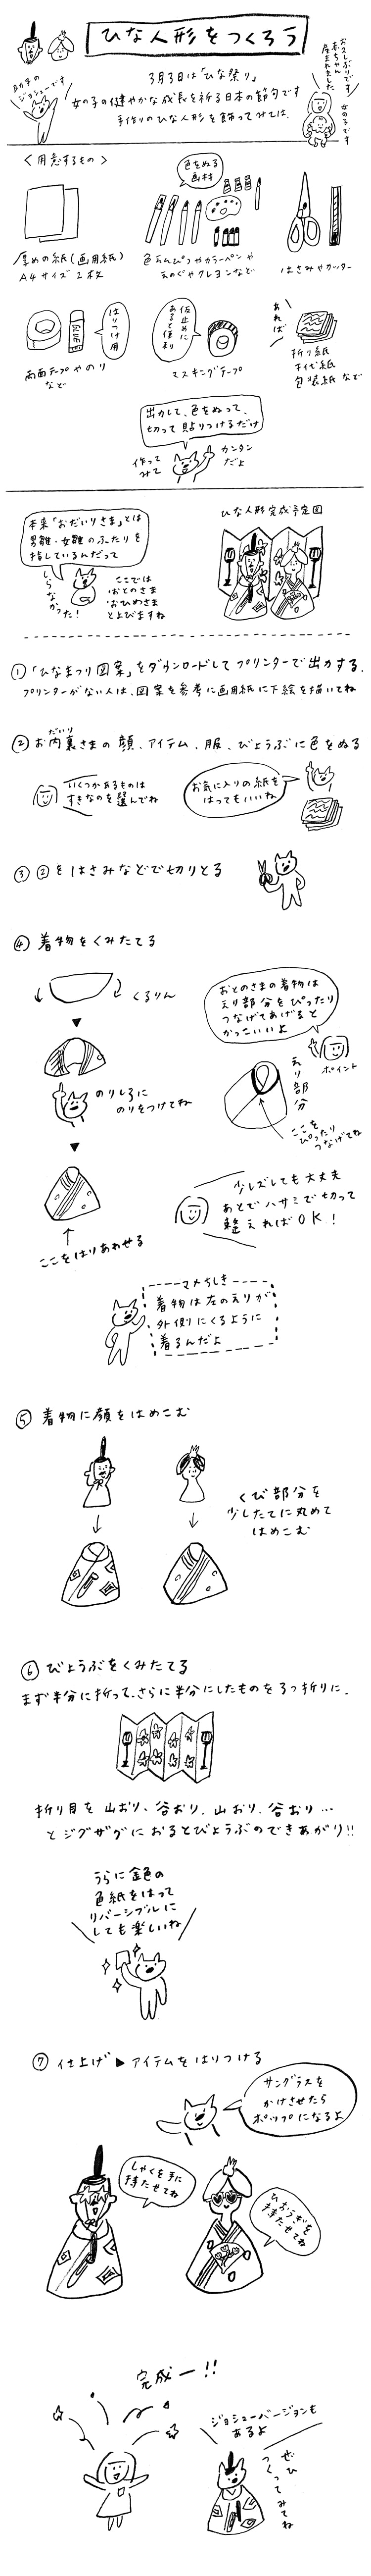 ひな人形をつくろう
助手の
ジョシューです
3月3日は「ひな祭り」
女の子の健やかな成長を祈る日本の節句です
手作りのひな人形を飾ってみては.
お久しぶりです
赤ちゃん
産まれました
女の子です
〈用意するもの〉
厚めの紙(画用紙)
A4サイズ2枚
色をぬる
画材
色えんぴつやカラーペンや
えのぐやクレヨンなど
はさみやカッター
GLUE
はりつけ用
両面テープやのり
など
仮止めに
あると便利
マスキングテープ
あれば
折り紙
千代紙
包装紙など
出力して、色をぬって、
切って貼りつけるだけ
作って
みて
カンタン
だよ
本来「おだいりさま」とは
男雛・女雛のふたりを
指しているんだって
しらなかった!
ここでは
・おとのさま
・おひめさま
とよびますね
ひな人形完成予定図
①「ひなまつり図案」をダウンロードしてプリンターで出力する.
プリンターがない人は、図案を参考に画用紙に下絵を描いてね
だいり
②お内裏さまの顔、アイテム、服、びょうぶに色をぬる
いくつかあるものは
すきなのを選んでね
お気に入りの紙を
はってもいいね
③②をはさみなどで切りとる
④着物をくみたてる
くるりん
のりしろに
のりをつけてね
ここをはりあわせる
おとのさまの着物は
えり部分をぴったり
つなげてあげると
かっこいいよ
ポイント
えり部分
ここを
ぴったり
つなげてね
少しズレしても大丈夫
あとでハサミで切って
整えればOK!
マメちしき
着物は左のえりが
外側にくるように
着るんだよ
⑤着物に顔をはめこむ
くび部分を
少したてに丸めて
はめこむ
⑥びょうぶをくみたてる
まず半分に折って、さらに半分にしたものを3つ折りに.
折り目を山おり、谷おり、山おり、谷おり…
とジグザグにおるとびょうぶのできあがり!!
うらに金色の
色紙をはって
リバーシブルに
しても楽しいね
⑦仕上げ▶アイテムをはりつける
サングラスを
かけさせたら
ポップになるよ
しゃくを手に
持たせてね
ひおうぎを
持たせてね
完成ー!!
ジョシューバージョンも
あるよ
ぜひ
つくってみてね